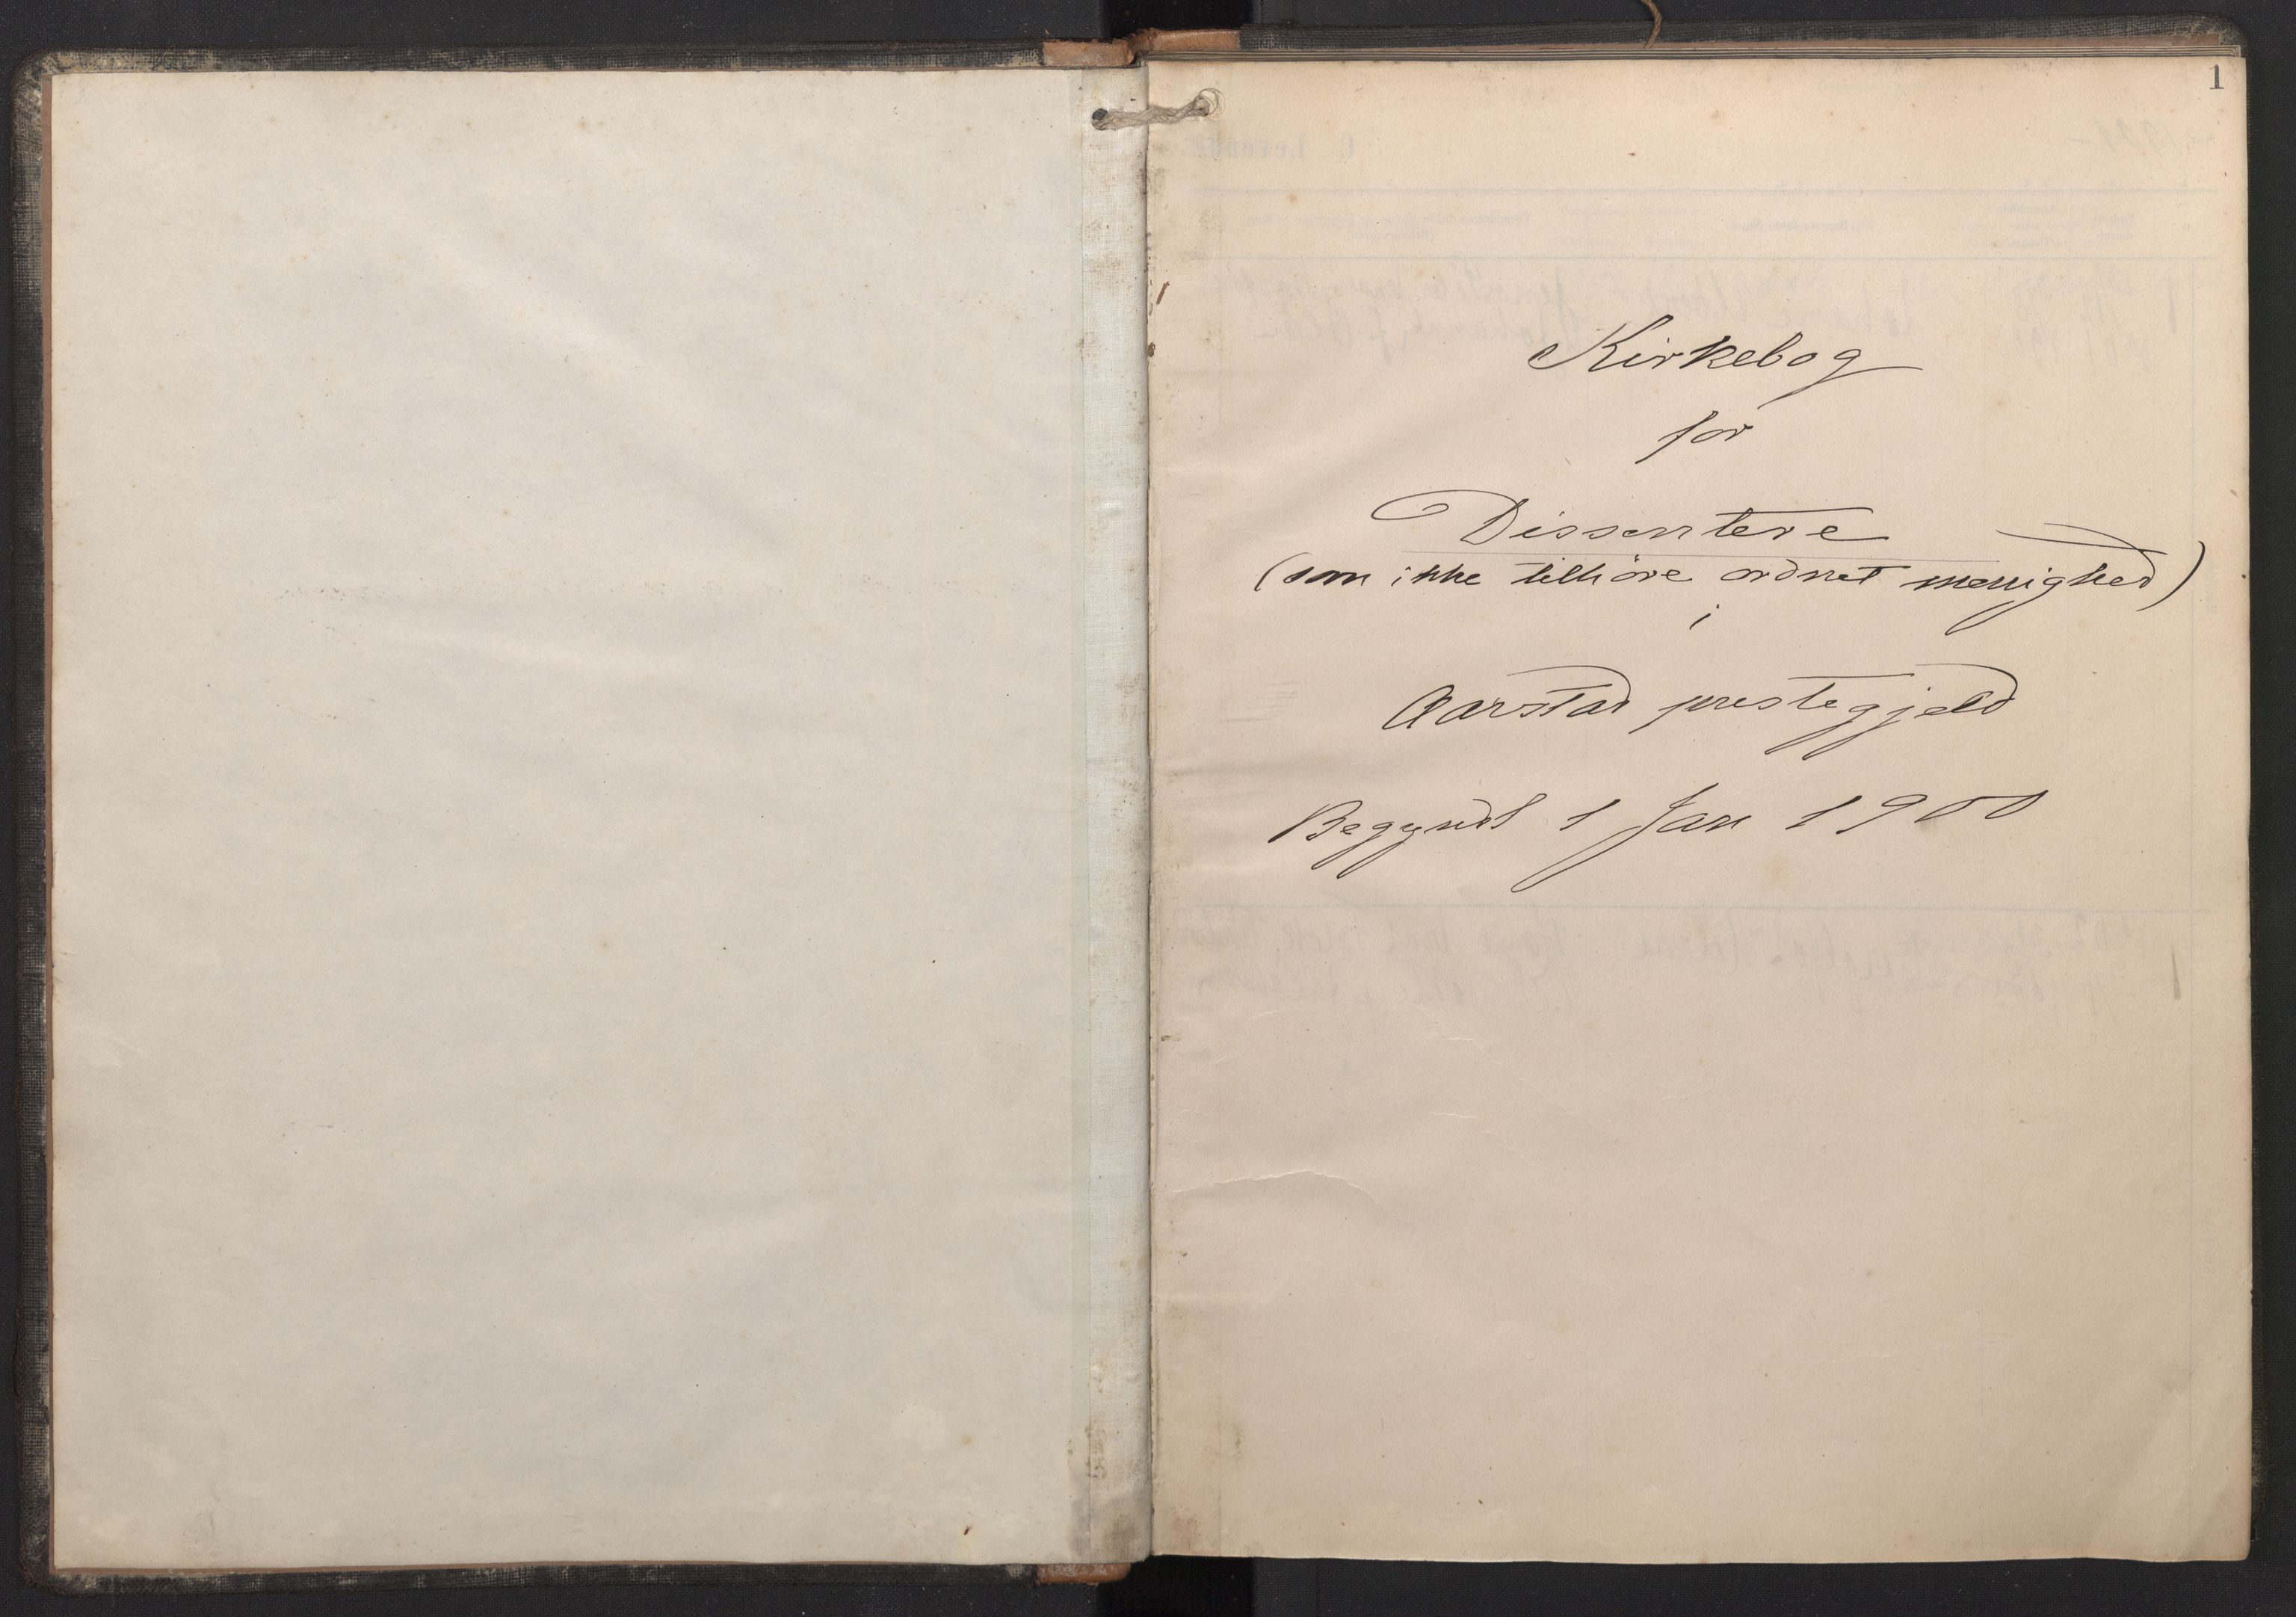 1
Kirkebog
for
Dissentere
(som ikke tilhöre ordnet menighed)
i
Aarstad prestegjeld
Begyndt 1 Jan 1900